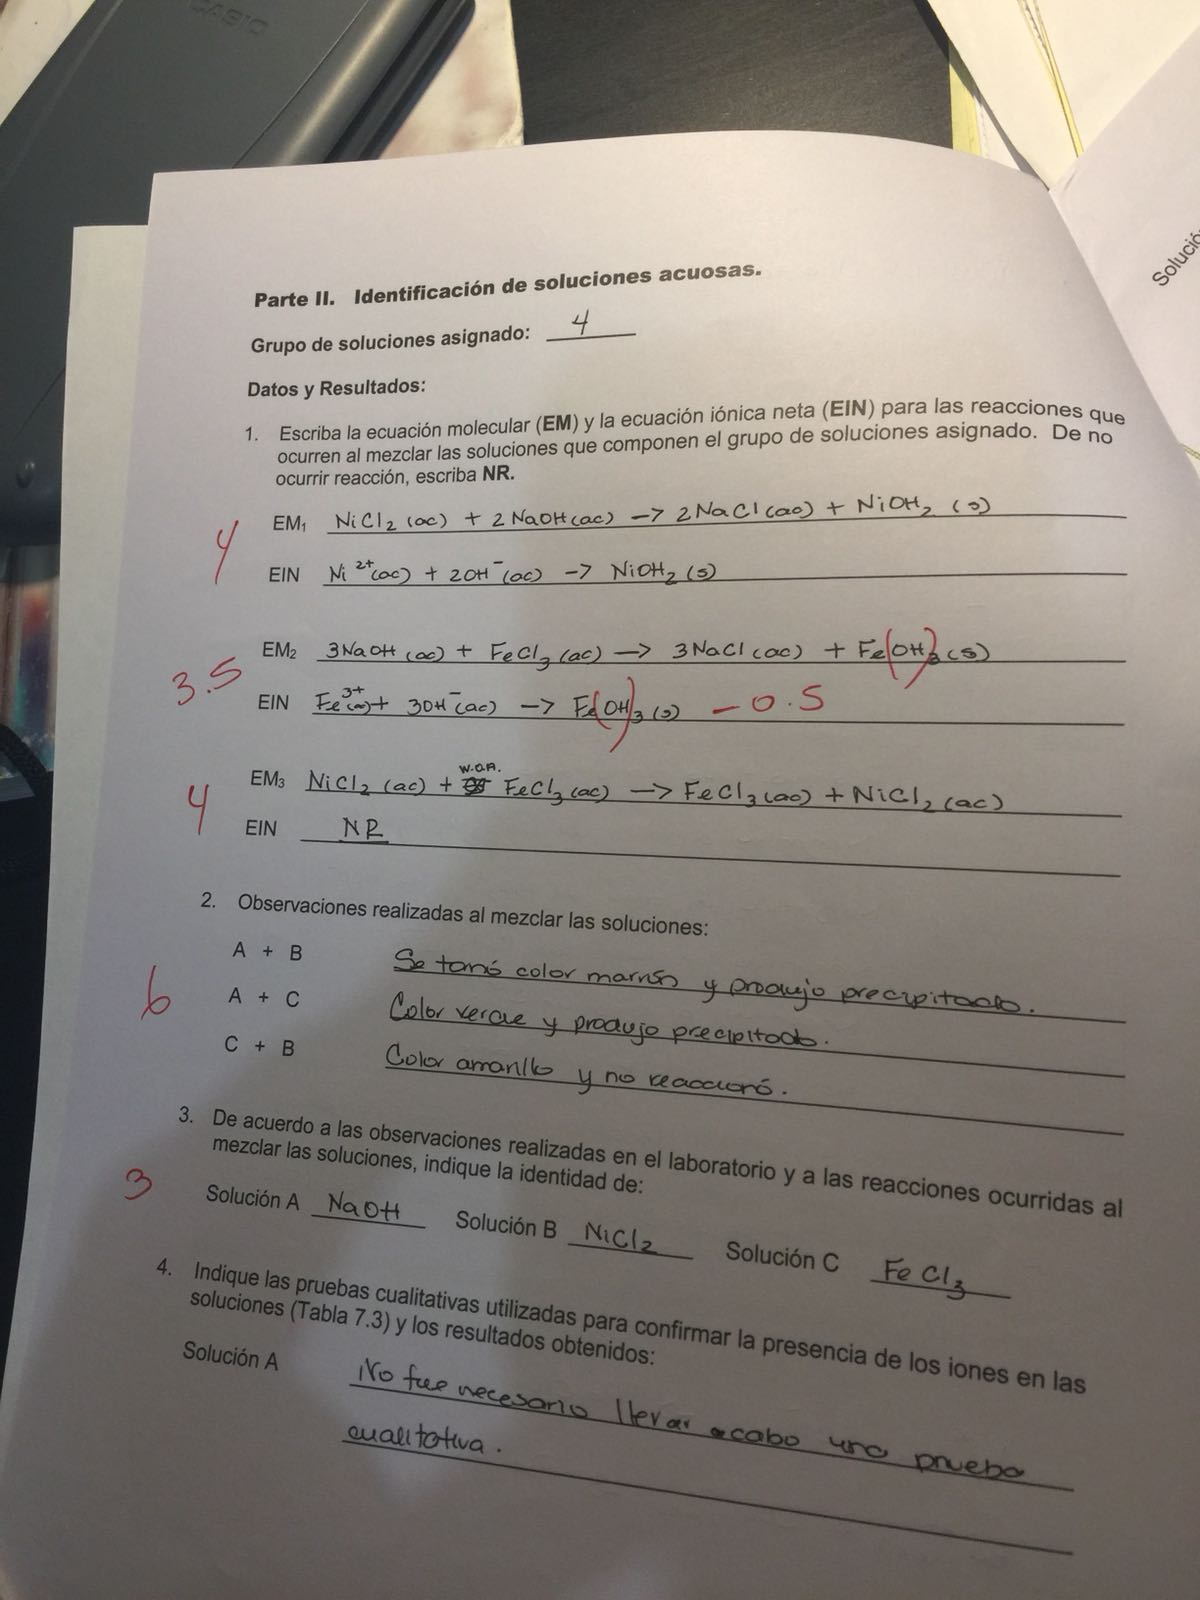 CASIO
Solució
Parte II. Identificación de soluciones acuosas.
Grupo de soluciones asignado: 4
Datos y Resultados:
1. Escriba la ecuación molecular (EM) y la ecuación iónica neta (EIN) para las reacciones que
ocurren al mezclar las soluciones que componen el grupo de soluciones asignado. De no
ocurrir reacción, escriba NR.
4
EM₁ NiCl₂ (ac) + 2 NaOH (ac) → 2NaCl (ac) + NiOH₂ (s)
EIN Ni²⁺(ac) + 2OH⁻(ac) → NiOH₂ (s)
3.5
EM₂ 3NaOH (ac) + FeCl₃ (ac) → 3NaCl (ac) + Fe(OH)₃ (s)
EIN Fe³⁺(ac) + 3OH⁻(ac) → Fe(OH)₃ (s) - 0.5
4
W.O.A.
EM₃ NiCl₂ (ac) + FeCl₃ (ac) → FeCl₃ (ac) + NiCl₂ (ac)
EIN NR
2. Observaciones realizadas al mezclar las soluciones:
6
A + B Se tornó color marrón y produjo precipitado.
A + C Color verde y produjo precipitado.
C + B Color amarillo y no reaccionó.
3. De acuerdo a las observaciones realizadas en el laboratorio y a las reacciones ocurridas al
mezclar las soluciones, indique la identidad de:
3
Solución A NaOH Solución B NiCl₂ Solución C FeCl₃
4. Indique las pruebas cualitativas utilizadas para confirmar la presencia de los iones en las
soluciones (Tabla 7.3) y los resultados obtenidos:
Solución A No fue necesario llevar acabo una prueba
cualitativa.